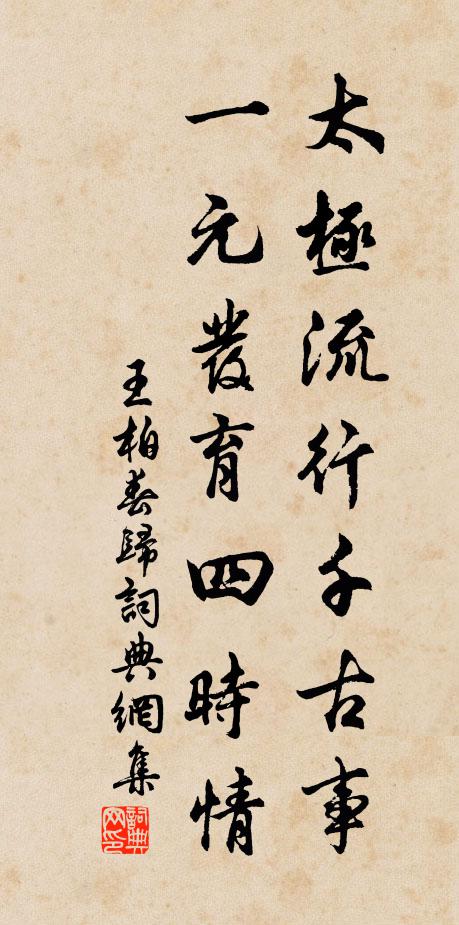 太極流行千古事
一元發育四時情
王柏春歸詞典網集
詞典網印